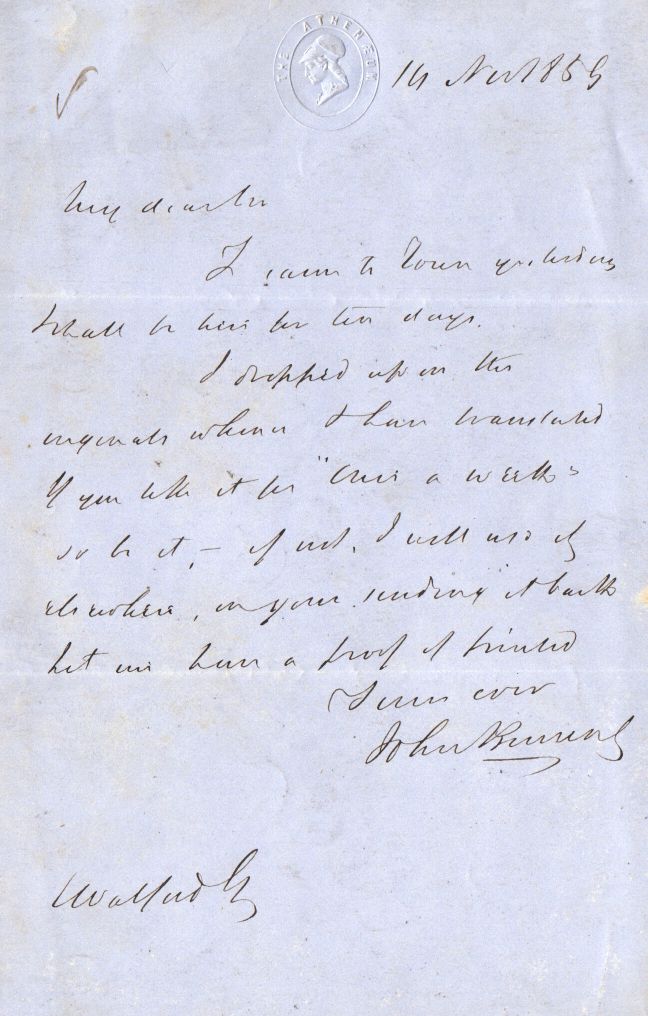 THE ATHENÆUM
14 Nov 1859
My dear Sir
I came to Town yesterday
& shall be here for ten days.
I dropped upon the
originals whence I have translated
If you like it for "Once a week"
so be it, – if not, I will use it
elsewhere, on your sending it back
Let me have a proof if printed
Yours ever
John
Walford